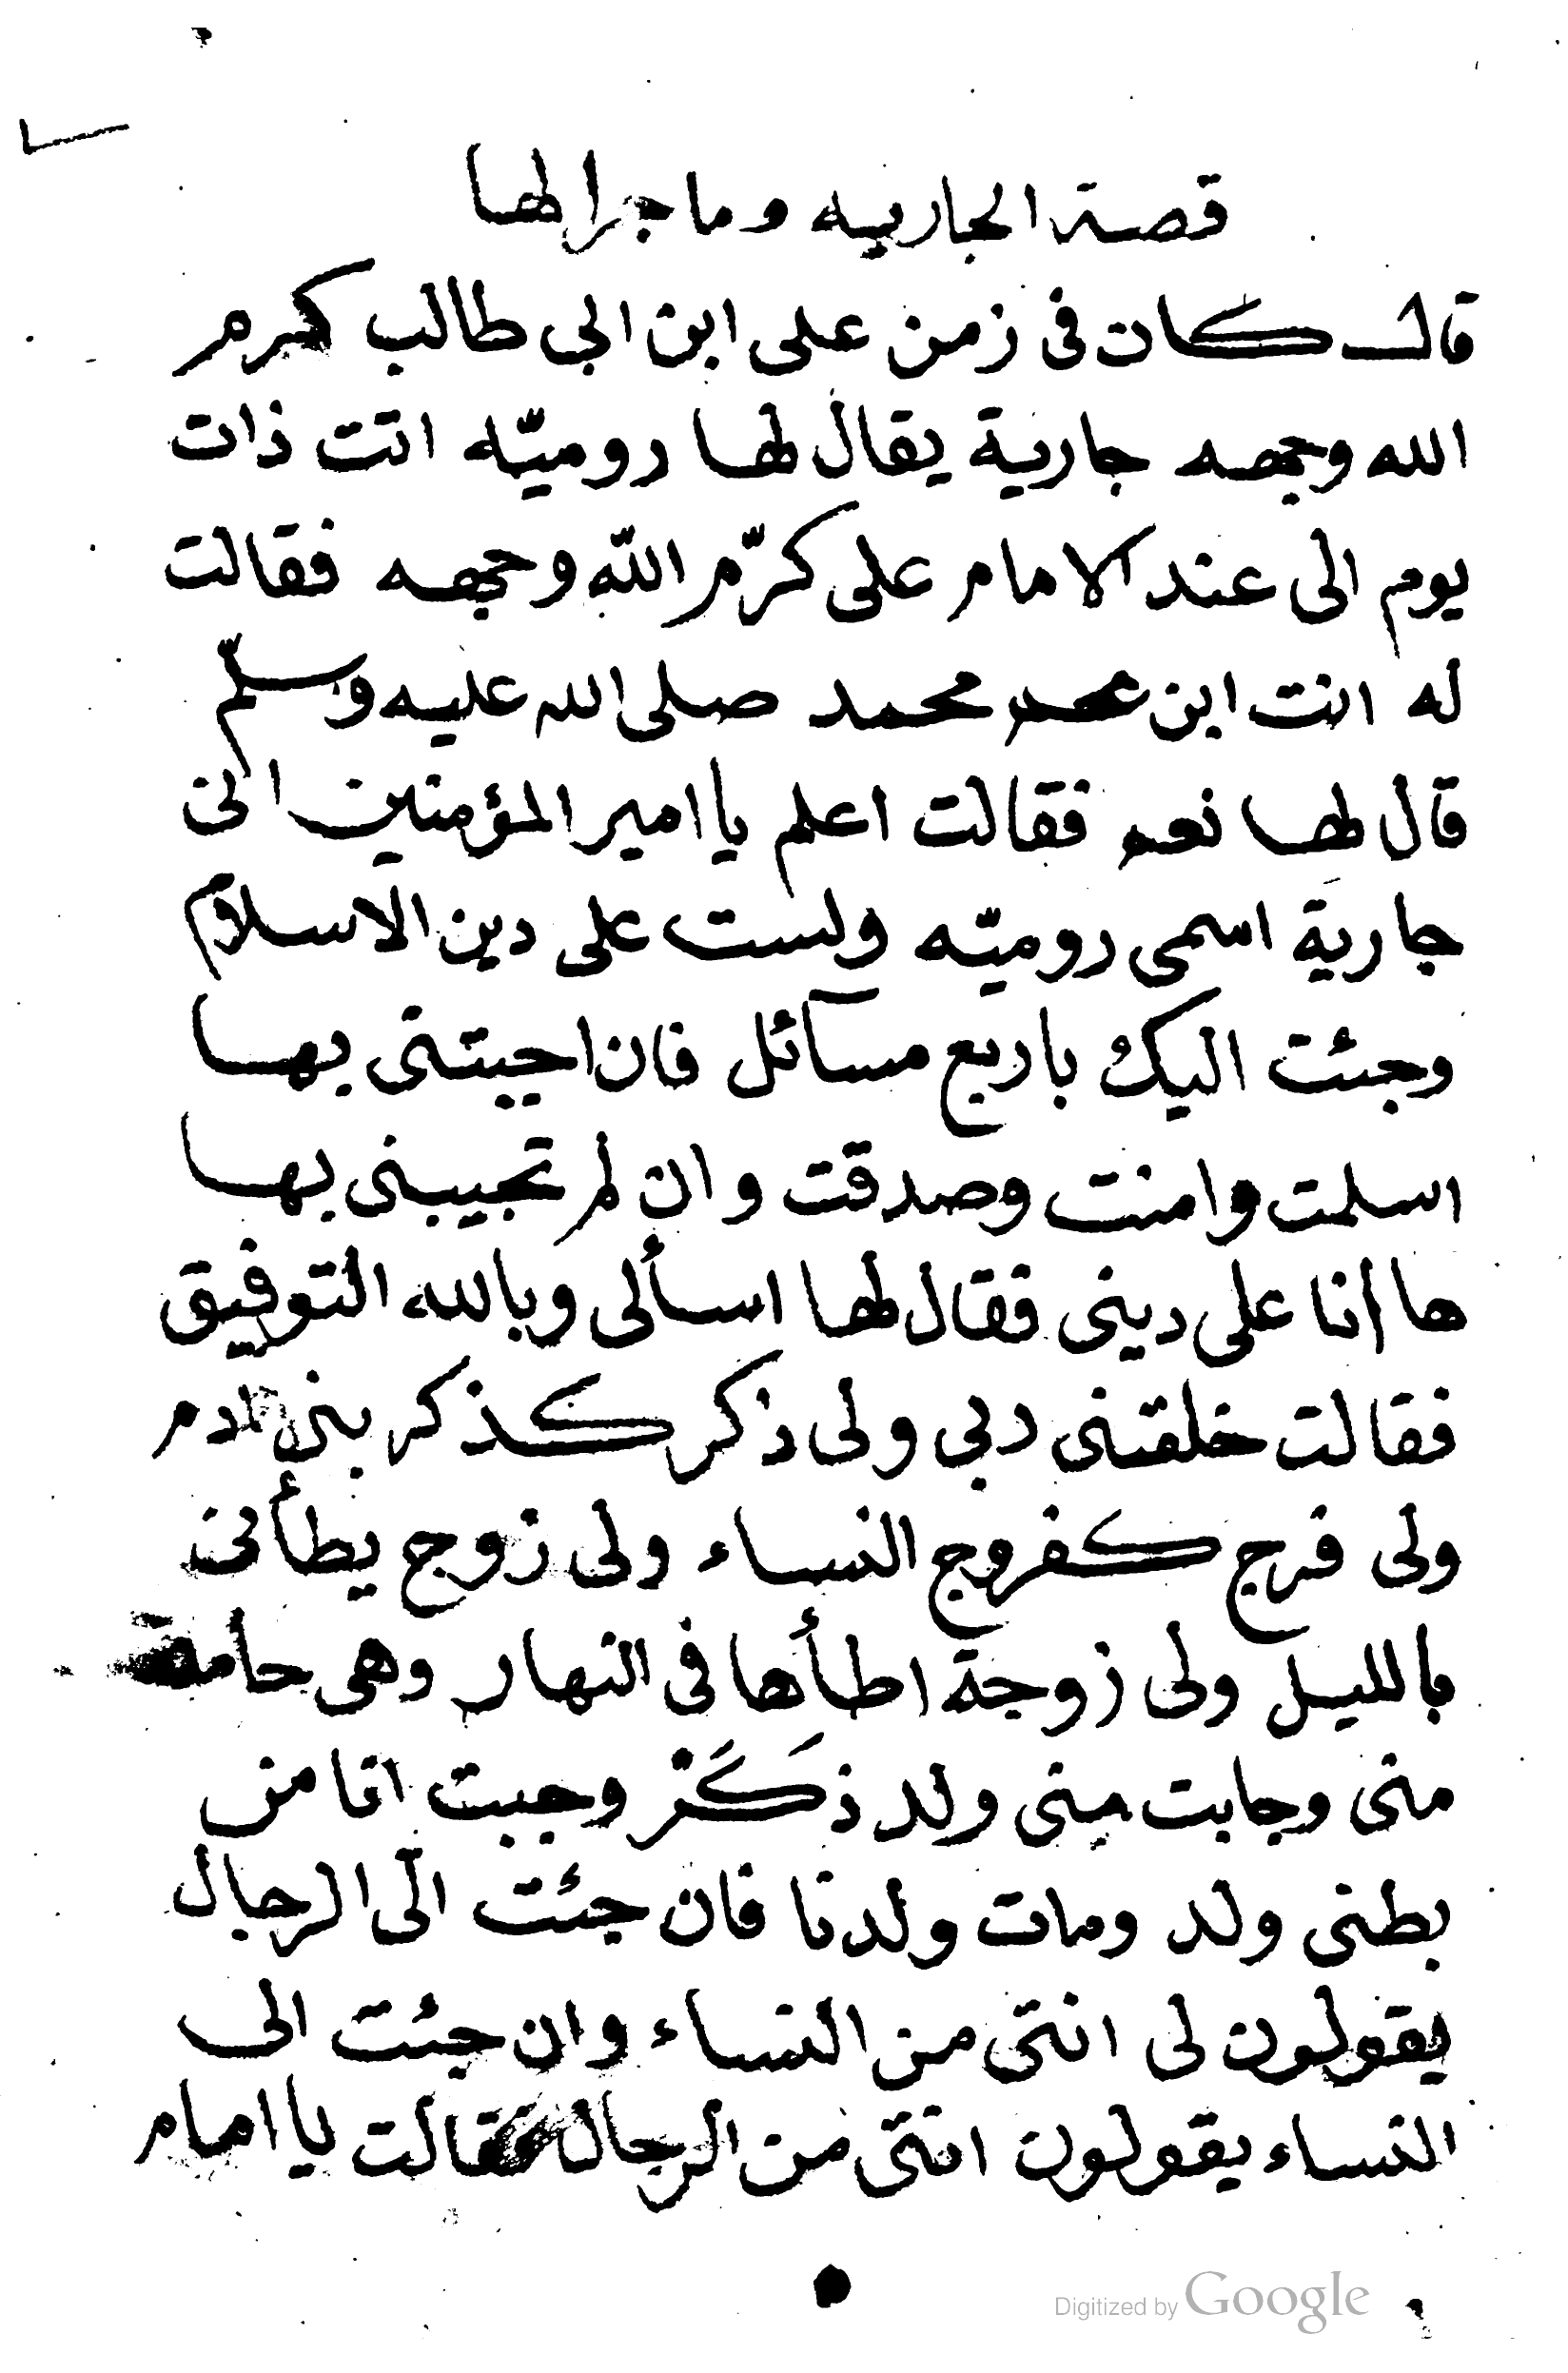 قصة الجاريه وما جرا لها
قال كان فى زمن على ابن ابي طالب كرم
الله وجهه جارية يقال لها روميّه اتت ذات
يوم الى عند الامام على كرّم اللّه وجهه فقالت
له انت ابن عم محمد صلى الله عليه وسلّم
قال لها نعم فقالت اعلم يا امير المؤمنين انى
جارية اسمى روميّه ولست على دين الاسلام
وجئت اليك باربع مسآئل فان اجيبتنى بها
اسلمت وامنت وصدقت وان لم تجيبنى بها
ها أنا على دينى فقال لها اسألى وبالله التوفيق
فقالت خلقتنى ربي ولى ذكر كذكر بنى ادم
ولى فرج كفروج النساء ولى زوج يطأنى
بالليل ولى زوجة اطأها فى النهار وهى حامله
منى وجابت منى ولد ذَكَرْ وجبت انا من
بطنى ولد ومات ولدنا فان جئت الى الرجال
يقولون لى انتى من النساء وان جئت الى
النساء يقولون انتى من الرجال فقالت يا امام
Digitized by Google